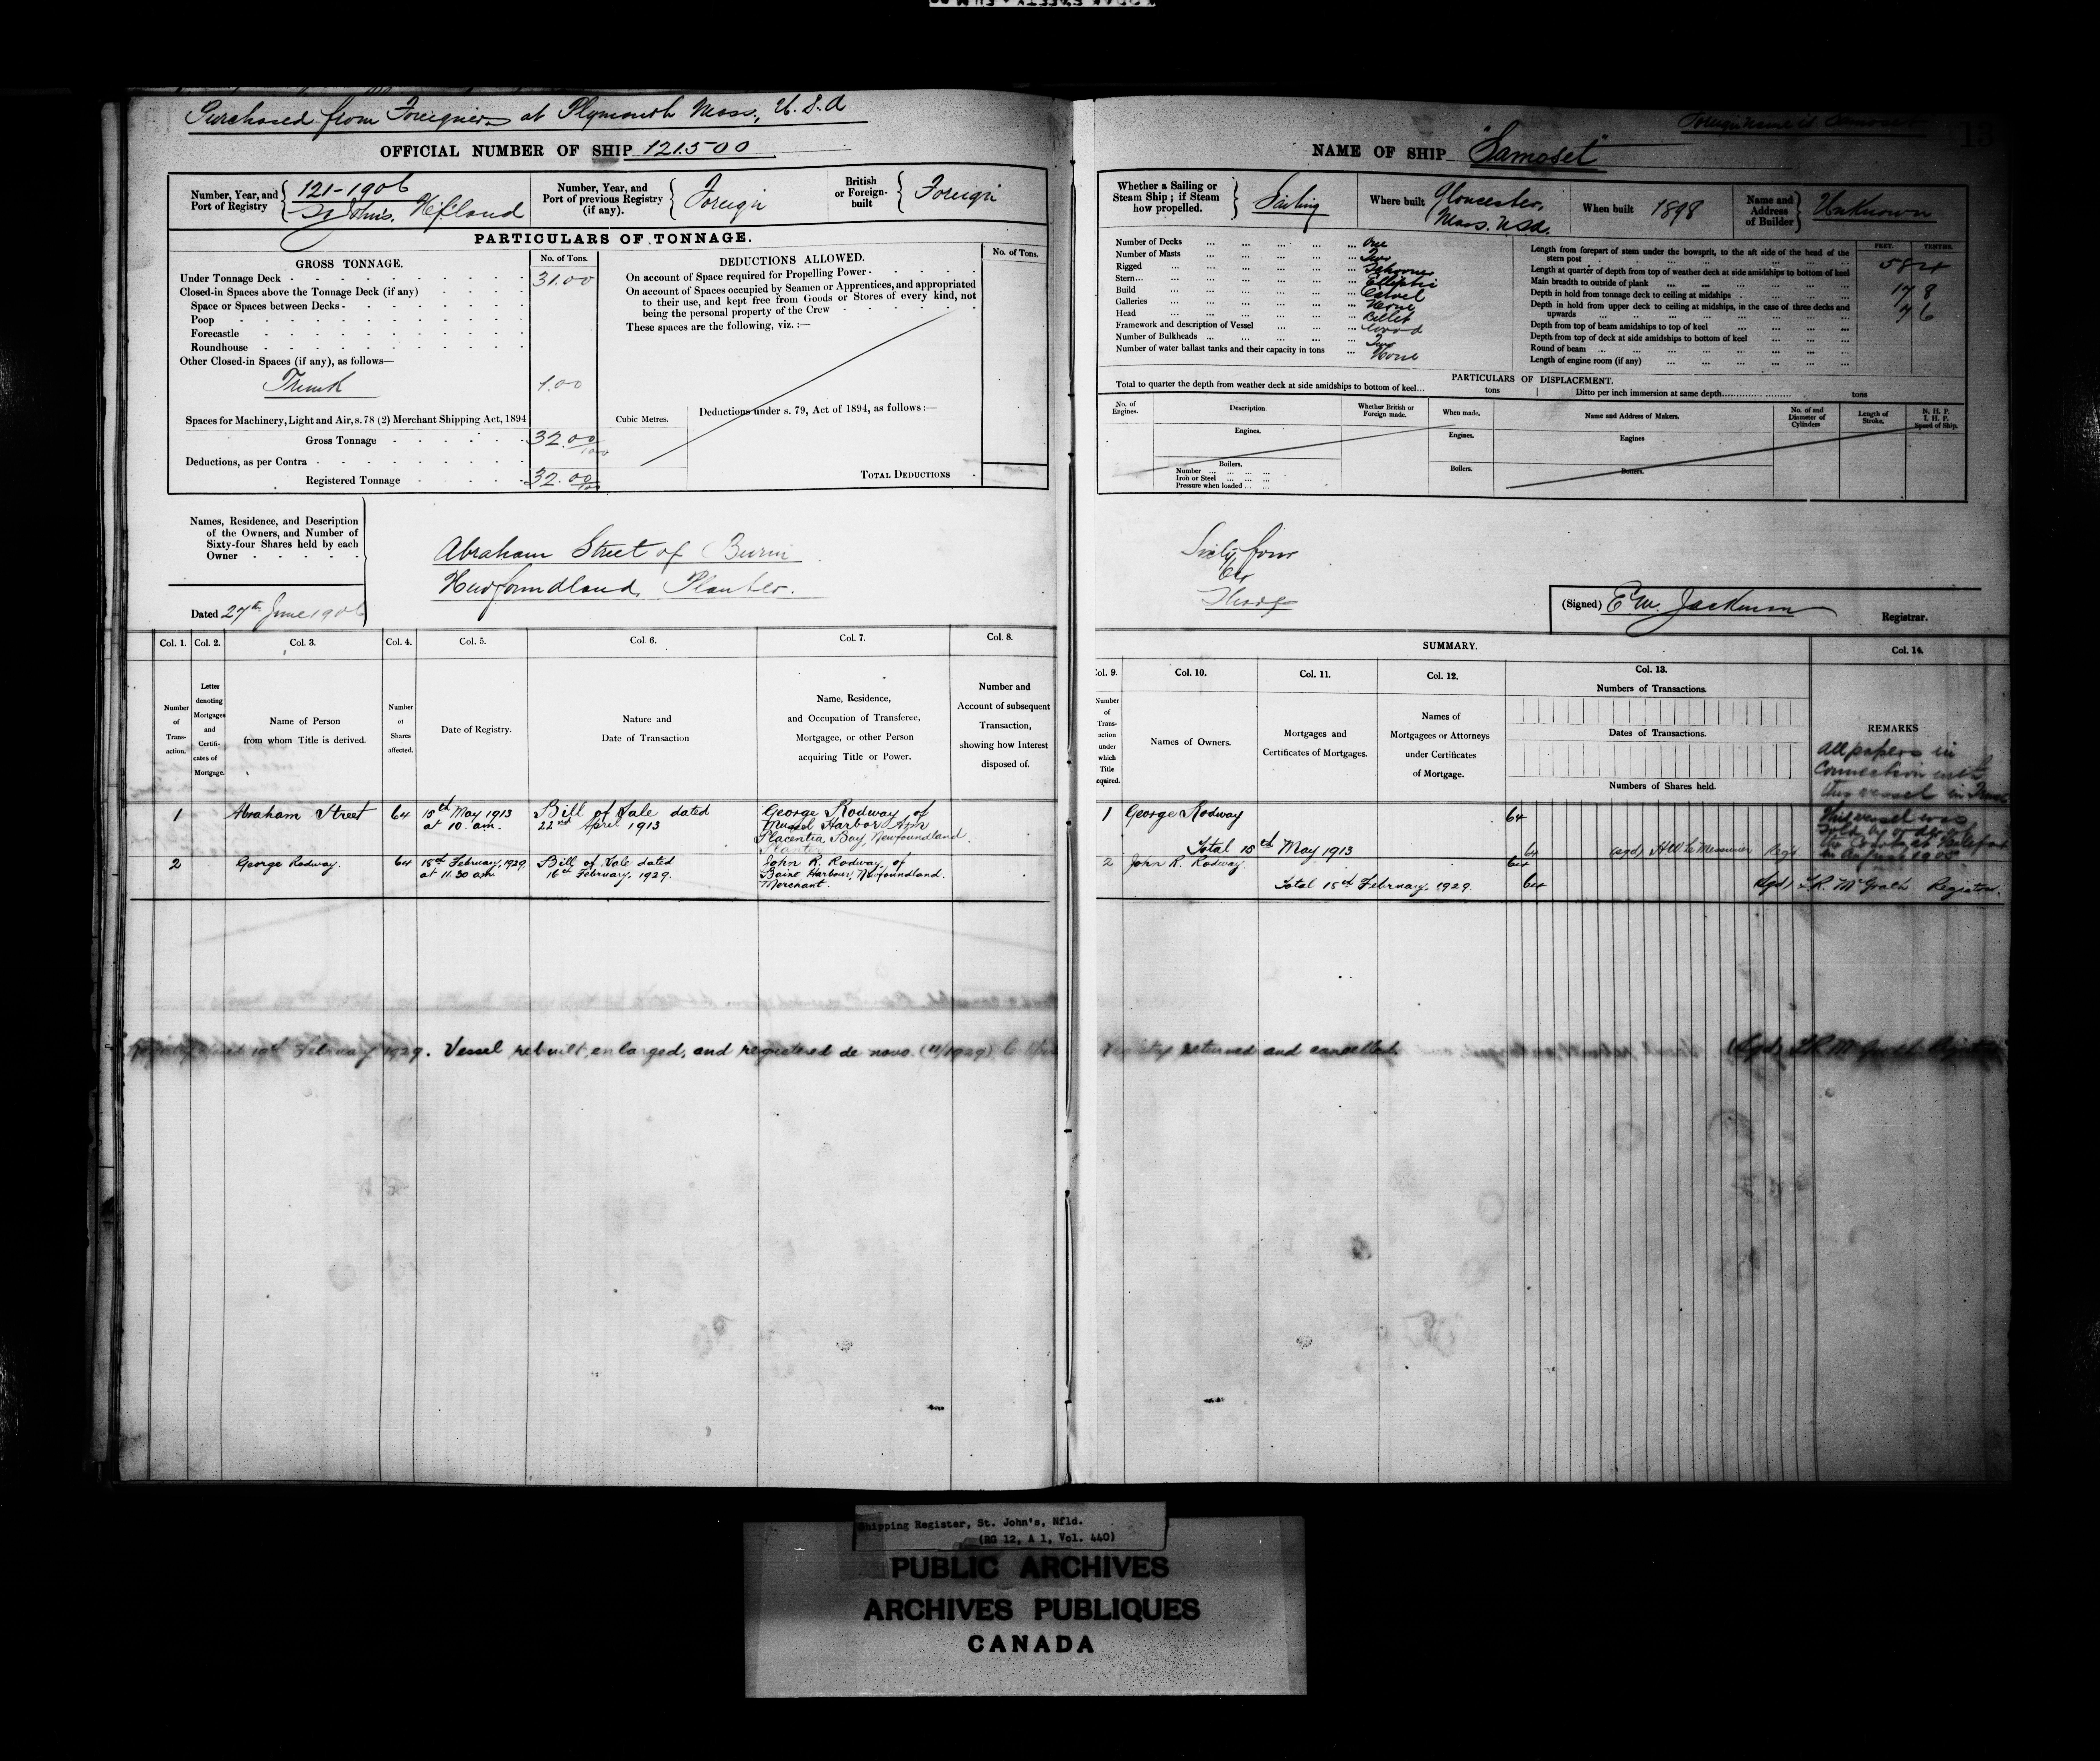 Purchased from Foreigners at Plymouth Mass., U.S.A
OFFICIAL NUMBER OF SHIP 121.500
Number, Year, and Port of Registry
121-1906
St John's, Nfland
Number, Year, and Port of previous Registry (if any).
Foreign
British or Foreign-built
Foreign
PARTICULARS OF TONNAGE.
GROSS TONNAGE.
No. of Tons.
DEDUCTIONS ALLOWED.
No. of Tons.
Under Tonnage Deck 31.00
Closed-in Spaces above the Tonnage Deck (if any)
Space or Spaces between Decks
Poop
Forecastle
Roundhouse
Other Closed-in Spaces (if any), as follows—
Trunk 1.00
Spaces for Machinery, Light and Air, s. 78 (2) Merchant Shipping Act, 1894
Gross Tonnage 32.00/100
Deductions, as per Contra
Registered Tonnage 32.00/100
On account of Space required for Propelling Power
On account of Spaces occupied by Seamen or Apprentices, and appropriated
to their use, and kept free from Goods or Stores of every kind, not
being the personal property of the Crew
These spaces are the following, viz. :—
Cubic Metres.
Deductions under s. 79, Act of 1894, as follows :—
TOTAL DEDUCTIONS
Names, Residence, and Description
of the Owners, and Number of
Sixty-four Shares held by each
Owner
Abraham Street of Burin
Newfoundland, Planter.
Dated 27th June 1906
Col. 1. Col. 2. Col. 3. Col. 4. Col. 5. Col. 6. Col. 7. Col. 8.
Number of Trans-action.
Letter denoting Mortgages and Certifi-cates of Mortgage.
Name of Person from whom Title is derived.
Number of Shares affected.
Date of Registry.
Nature and Date of Transaction
Name, Residence, and Occupation of Transferee, Mortgagee, or other Person acquiring Title or Power.
Number and Account of subsequent Transaction, showing how Interest disposed of.
1 Abraham Street 64 15th May 1913 Bill of Sale dated George Rodway of
at 10. a.m. 22nd April 1913 Mussel Harbor Arm
Placentia Bay, Newfoundland
Planter
2 George Rodway. 64 18th February, 1929 Bill of Sale dated John R. Rodway, of
at 11.30 a.m. 16th February, 1929. Baine Harbour, Newfoundland.
Merchant.
February 1929. Vessel rebuilt, enlarged, and registered de novo. (11/1929)
Foreign name is Samoset
13
NAME OF SHIP "Samoset"
Whether a Sailing or Steam Ship ; if Steam how propelled.
Sailing
Where built
Gloucester,
Mass. USA.
When built 1898
Name and Address of Builder
Unknown
Number of Decks One
Number of Masts Two
Rigged Schooner
Stern Elliptic
Build Carvel
Galleries None
Head Billet
Framework and description of Vessel Wood
Number of Bulkheads Two
Number of water ballast tanks and their capacity in tons None
FEET. TENTHS.
Length from forepart of stem under the bowsprit, to the aft side of the head of the
stern post 58 4
Length at quarter of depth from top of weather deck at side amidships to bottom of keel
Main breadth to outside of plank 17 8
Depth in hold from tonnage deck to ceiling at midships 7 6
Depth in hold from upper deck to ceiling at midships, in the case of three decks and
upwards
Depth from top of beam amidships to top of keel
Depth from top of deck at side amidships to bottom of keel
Round of beam
Length of engine room (if any)
PARTICULARS OF DISPLACEMENT.
Total to quarter the depth from weather deck at side amidships to bottom of keel... tons Ditto per inch immersion at same depth... tons
No. of Engines.
Description
Whether British or Foreign made.
When made.
Name and Address of Makers.
No. of and Diameter of Cylinders
Length of Stroke.
N. H. P.
I. H. P.
Speed of Ship.
Engines. Engines. Engines
Boilers. Boilers. Boilers.
Number
Iron or Steel
Pressure when loaded
Sixty four
64
Shares
(Signed) E. W. Jackman
Registrar.
SUMMARY.
Col. 9. Col. 10. Col. 11. Col. 12. Col. 13. Col. 14.
Number of Trans-action under which Title acquired.
Names of Owners.
Mortgages and Certificates of Mortgages.
Names of Mortgagees or Attorneys under Certificates of Mortgage.
Numbers of Transactions.
Dates of Transactions.
Numbers of Shares held.
REMARKS
All papers in
connection with
this vessel in Trunk
This vessel was
sold by order of
the Court at
in 1905
1 George Rodway 64
Total 15th May 1913 64 (sgd) H W LeMessurier Regr.
2 John R. Rodway. 64
Total 18th February, 1929. 64 (Sgd) F.R. McGrath Registrar.
Registry returned and cancelled. (Sgd) F.R. McGrath Registrar
Shipping Register, St. John's, Nfld.
(RG 12, A 1, Vol. 440)
PUBLIC ARCHIVES
ARCHIVES PUBLIQUES
CANADA